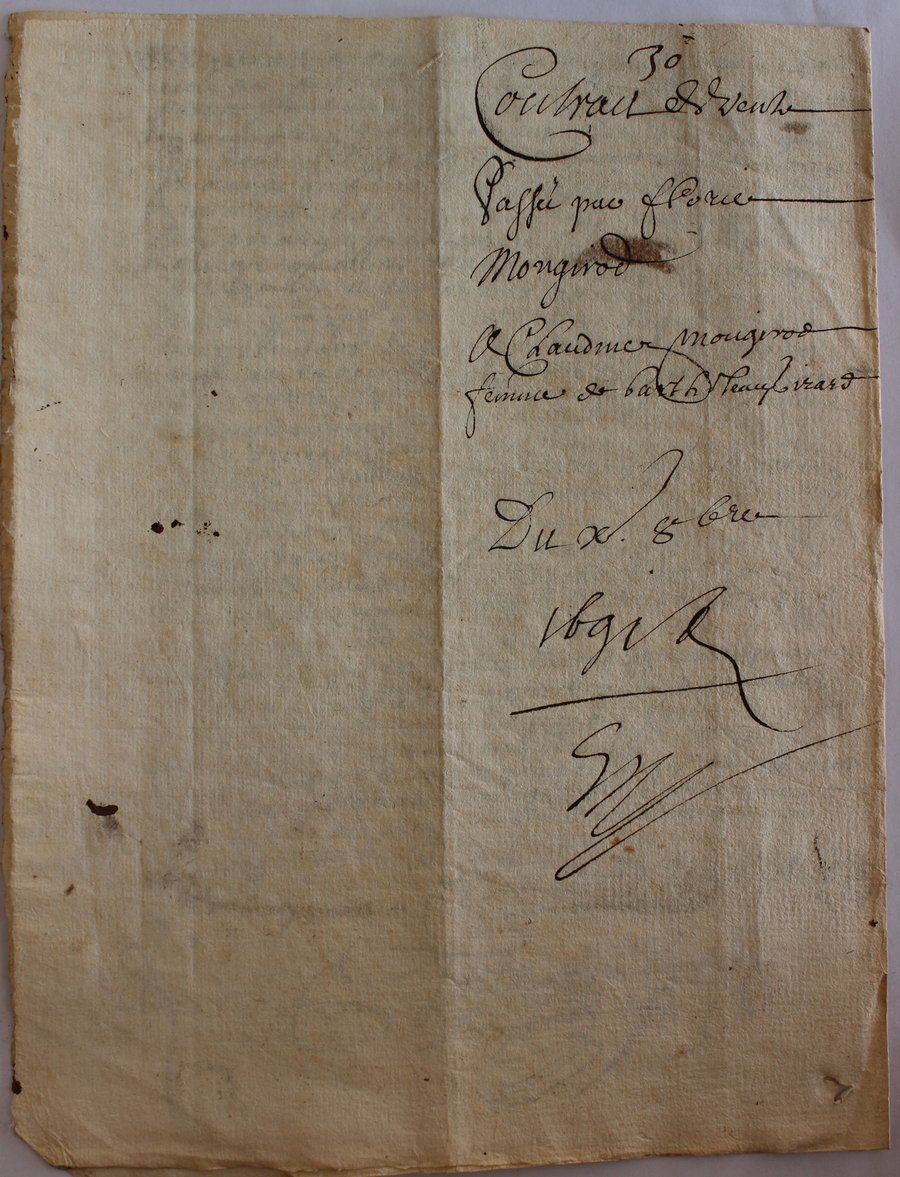 30
Contract de vente
Passé par florie
Mongirod
A Claudine mongirod
femme de barth
Du x. 8bre
1691